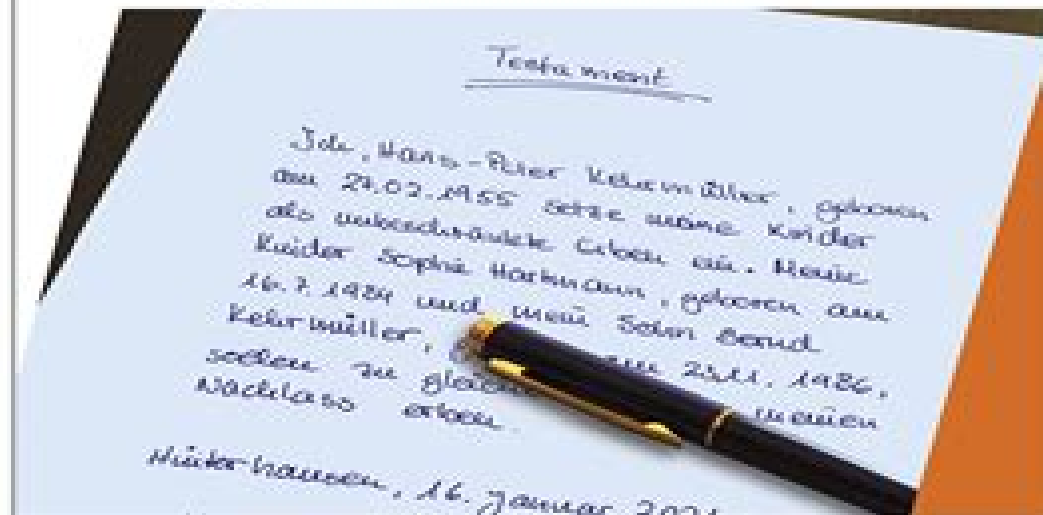 Testament
Ich, Hans-Peter Kehrmüller, geboren
am 27.02.1955 setze meine Kinder
als unbeschränkte Erben ein. Meine
Kinder Sophie Hartmann, geboren am
16.7.1984 und mein Sohn Bernd
Kehrmüller, am 23.11.1986,
sollen zu meinen
Nachlass erben.
Hinterhausen, 16. Januar